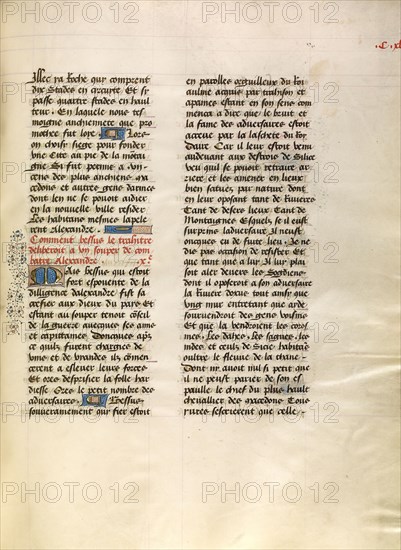 .C. xl
Illec ya Roche quy comprent
dix Stades en circuyte Et sy
passe quattre stades en haul
teur. En laquele nous tes
moigne anchiennete que pro
metheee fut loye. Lors
on choisy siege pour fonder
une Cite au pie de la monta
gne. Si fut permis a .vii.
gens des plus anchiens ma
cedons et autres gens darmes
dont len ne se pouoit aidier
en la nouvelle ville residez
Les habitans mesmes lapele
rent Alexandre.
Comment bessus le traittre
deliberoit a un souper de com
batre Alexandre. x.e
Mais bessus qui estoit
fort espovente de la
dilligence dalexandre fist sa
crefier aux dieux du pays Et
estant au souper tenoit conseil
de la guerre avecques ses amis
et capittaines Doncques apres
ce quilz furent chargies de
vins et de viandes ilz commen
cerent a eslever leurs forces
Et ores desprisier la folle har
diesse Ores le petit nombre des
adversaires. Bessus
souverainement quy fier estoit
en parolles orguilleux du Roi
aulme acquis par trahison et
apaines estant en son sens com
menca a dire que le bruit et
la fame des adversaires estoit
acreue par la lascheté du Roy
Daire. Car il leur estoit venu
audevant aux destrois de Silice
veu quil se pouoit retraire ar
riere et les amener en lieux
bien seures par nature dont
en leur oposant tant de Rivieres
Tant de desers lieux Tant de
Montaignes Esquelz se il eust
surprins ladversaire Il neust
oncques eu de fuite lieu. Je ne
dy pas occasion de resister Et
que tant que a luy. Il luy plai
soit aler devers les Sogdiens
dont il oposeroit a son adversaire
la Riviere doxus tout ainsy que
ung mur entretant que arde
sourvendroit des gens voisins
Et que la vendroient les coras
mes, Les dahes, les sagues, les
indes et ceulx de Sice habitans
oultre le fleuve de la thane.
Dont nz avoit nul si petit que
il ne peust parier de son es
paulle le chief du plus hault
chevallier des macedons Tous
yvres sescrierent que celle